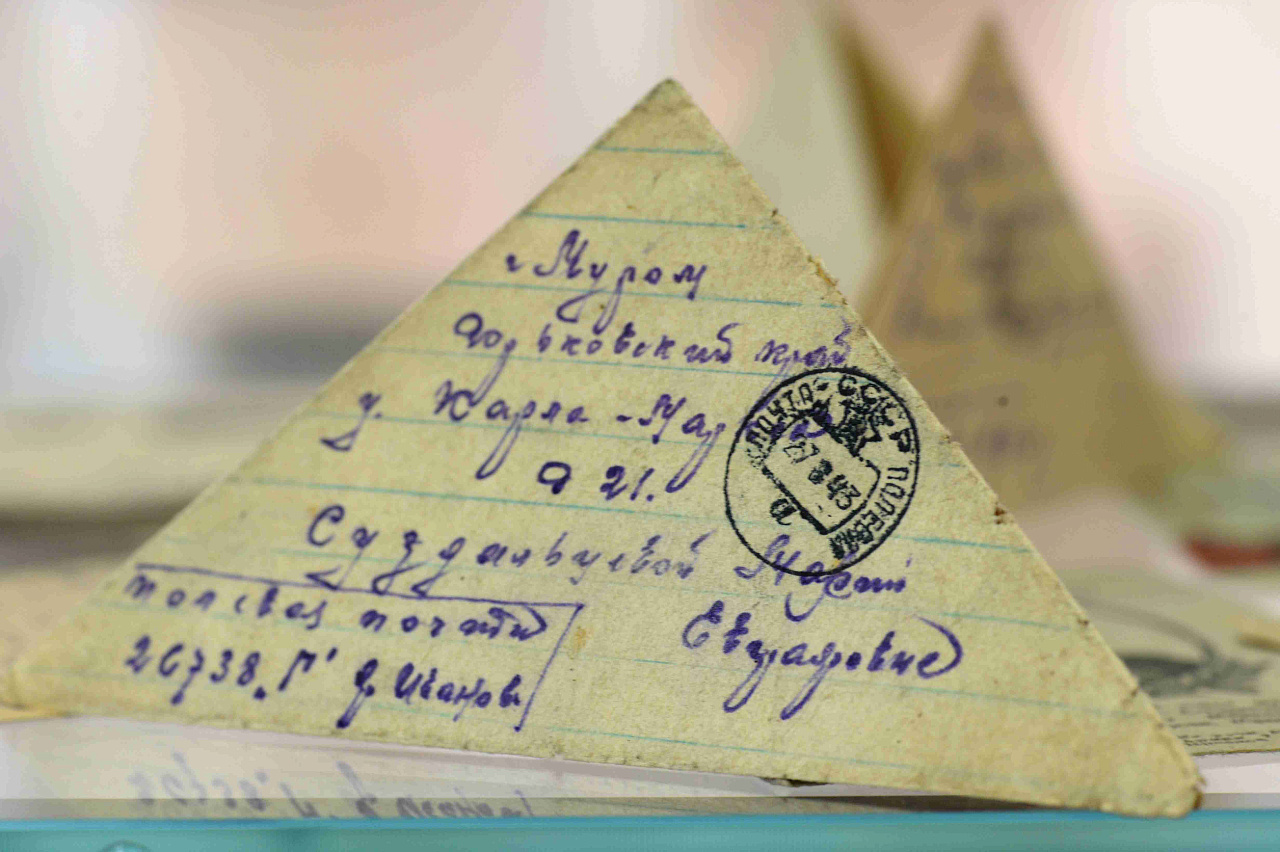 г Муром
Горьковский край
у. Карла-Маркса
д 21.
Суздальцевой Марии
Евграфовне
полевая почта
26738 „Г" Ф. Иванов
ПОЧТА-СССР ПОЛЕВАЯ
27 8 43
а